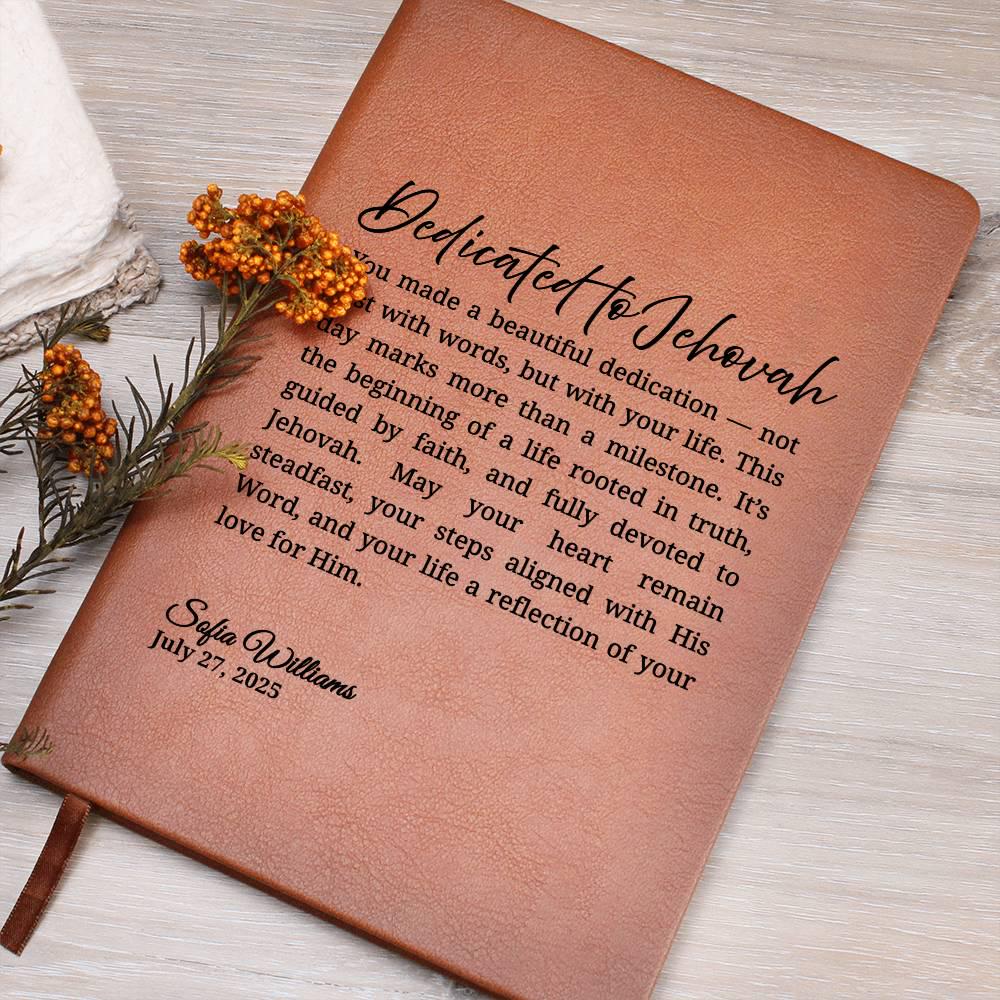 Dedicated to Jehovah
You made a beautiful dedication — not
just with words, but with your life. This
day marks more than a milestone. It's
the beginning of a life rooted in truth,
guided by faith, and fully devoted to
Jehovah. May your heart remain
steadfast, your steps aligned with His
Word, and your life a reflection of your
love for Him.
Sofia Williams
July 27, 2025